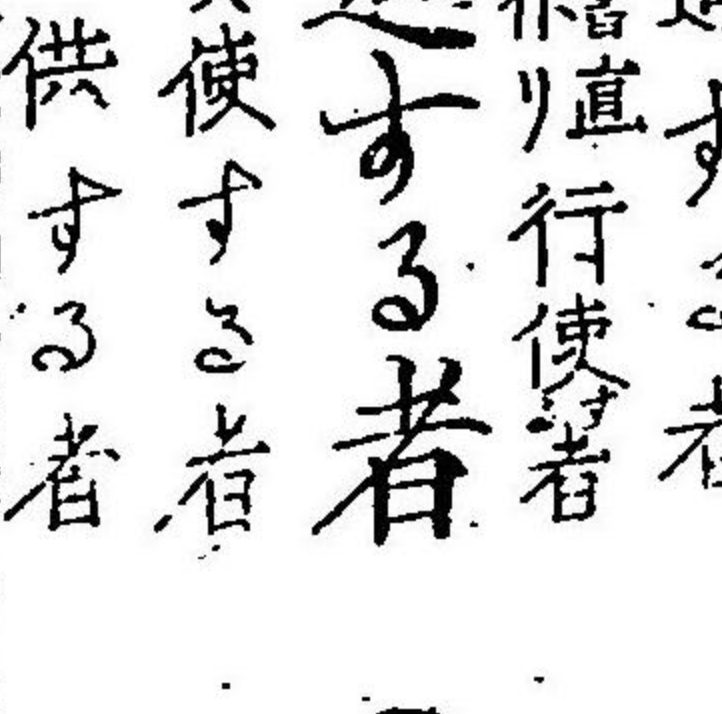 する者
直
リ
行使する者
する者
使する者
供する者